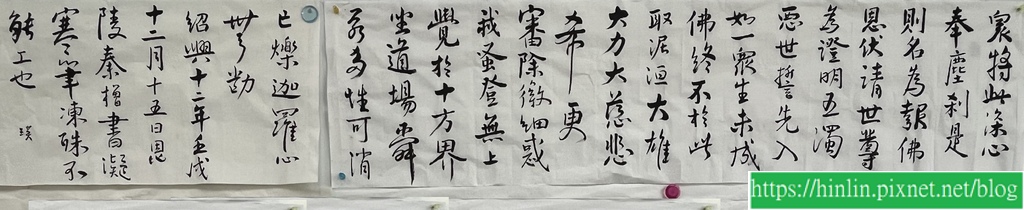 眾將此深心
奉塵剎是
則名為報佛
恩伏請世尊
為證明五濁
惡世誓先入
如一眾生未成
佛終不於此
取泥洹大雄
大力大慈悲
希更
審除微細惑
我蚤登無上
覺於十方界
坐道場舜
若多性可消
亡爍迦羅心
無動
紹興十二年壬戌
十二月十五日毘
陵秦檜書凝
寒筆凍殊不
能工也 瑛
https://hinlin.pixnet.net/blog